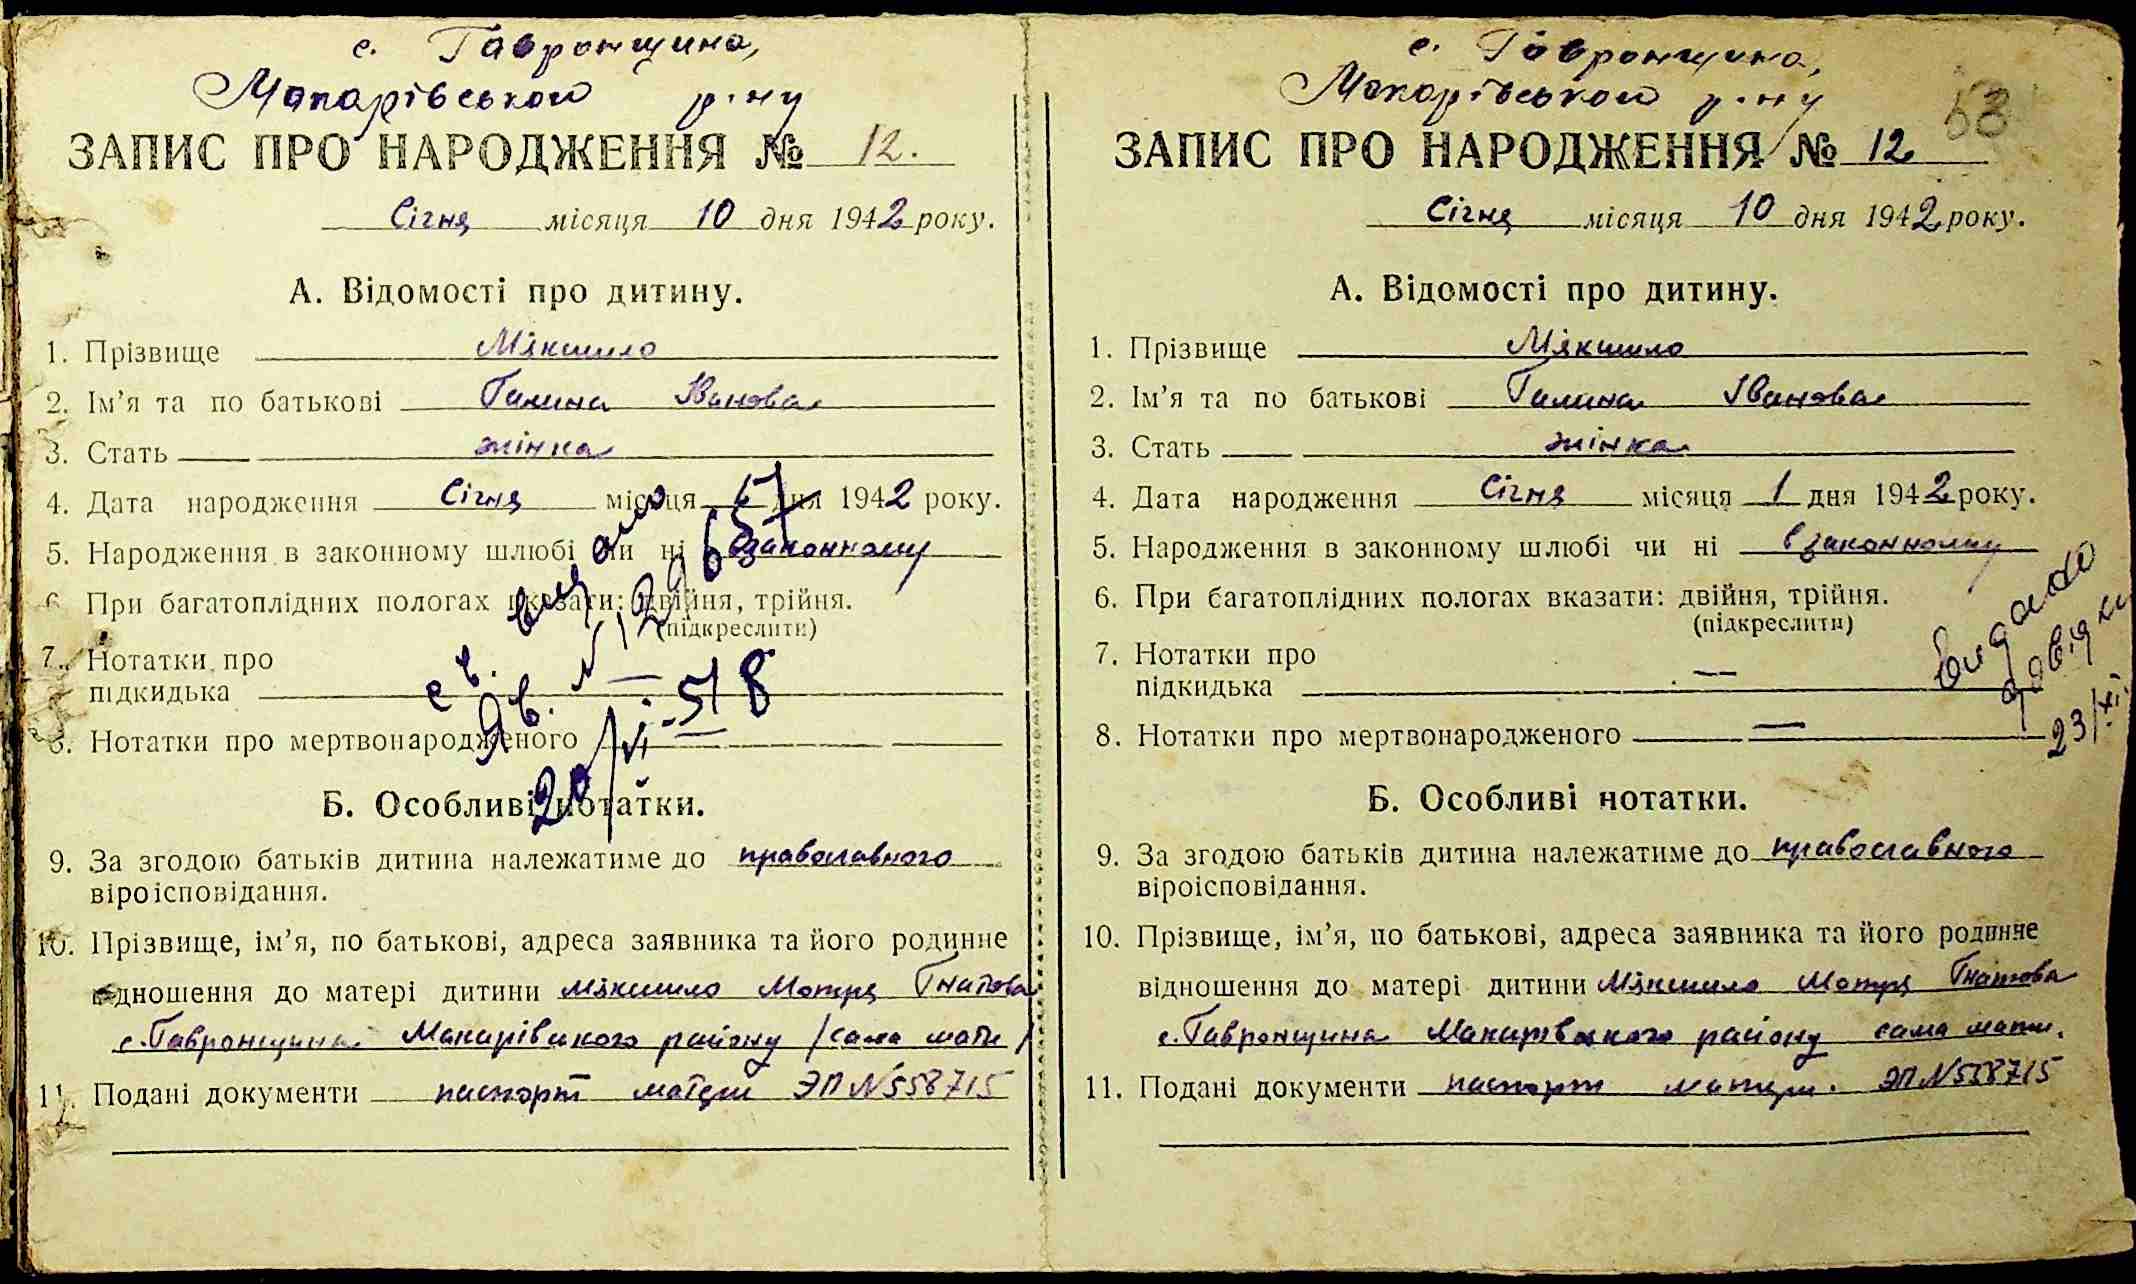 с. Гавронщина,
Макарівської р-ну
ЗАПИС ПРО НАРОДЖЕННЯ № 12.
Січня місяця 10 дня 1942 року.
А. Відомості про дитину.
1. Прізвище Мякшило
2. Ім'я та по батькові Галина Іванова
3. Стать жінка
4. Дата народження Січня місяця дня 1942 року.
5. Народження в законному шлюбі чи ні в законному
6. При багатоплідних пологах вказати: двійня, трійня.
(підкреслити)
7. Нотатки про
підкидька
8. Нотатки про мертвонародженого
св. видано
20/VI-
Б. Особливі нотатки.
9. За згодою батьків дитина належатиме до православного
віроісповідання.
10. Прізвище, ім'я, по батькові, адреса заявника та його родинне
відношення до матері дитини Мякшило Мотря Гнатова
с. Гавронщина Макарівського району /сама мати/
11. Подані документи паспорт матери ЭП N558715
с. Гавронщина,
Макарівської р-ну
53
ЗАПИС ПРО НАРОДЖЕННЯ № 12
Січня місяця 10 дня 1942 року.
А. Відомості про дитину.
1. Прізвище Мякшило
2. Ім'я та по батькові Галина Іванова
3. Стать жінка
4. Дата народження Січня місяця 1 дня 1942 року.
5. Народження в законному шлюбі чи ні в законному
6. При багатоплідних пологах вказати: двійня, трійня.
(підкреслити)
7. Нотатки про
підкидька —
8. Нотатки про мертвонародженого —
Видано
23/XI
Б. Особливі нотатки.
9. За згодою батьків дитина належатиме до православного
віроісповідання.
10. Прізвище, ім'я, по батькові, адреса заявника та його родинне
відношення до матері дитини Мякшило Мотря Гнатова
с. Гавронщина Макарівського району сама мати.
11. Подані документи паспорт матери. ЭП N558715